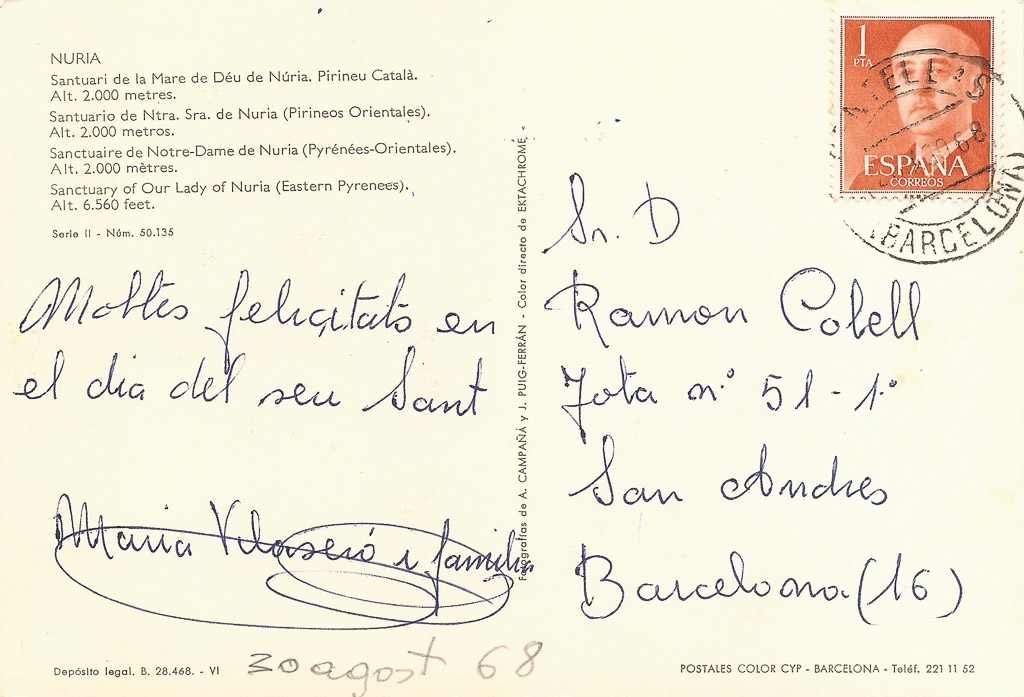 NURIA
Santuari de la Mare de Déu de Núria. Pirineu Català.
Alt. 2.000 metres.
Santuario de Ntra. Sra. de Nuria (Pirineos Orientales).
Alt. 2.000 metros.
Sanctuaire de Notre-Dame de Nuria (Pyrénées-Orientales).
Alt. 2.000 mètres.
Sanctuary of Our Lady of Nuria (Eastern Pyrenees).
Alt. 6.560 feet.
Serie II - Núm. 50.135
Moltes felicitats en
el dia del seu Sant
Maria Vilaseió i familia
30 agost 68
Depósito legal. B. 28.468. - VI
Fotografías de A. CAMPAÑÁ y J. PUIG-FERRÁN - Color directo de EKTACHROME
1
PTA
ESPAÑA
CORREOS
68
(BARCELONA)
Sr. D
Ramon Colell
Jota nº 51 - 1º
San Andres
Barcelona (16)
POSTALES COLOR CYP - BARCELONA - Teléf. 221 11 52